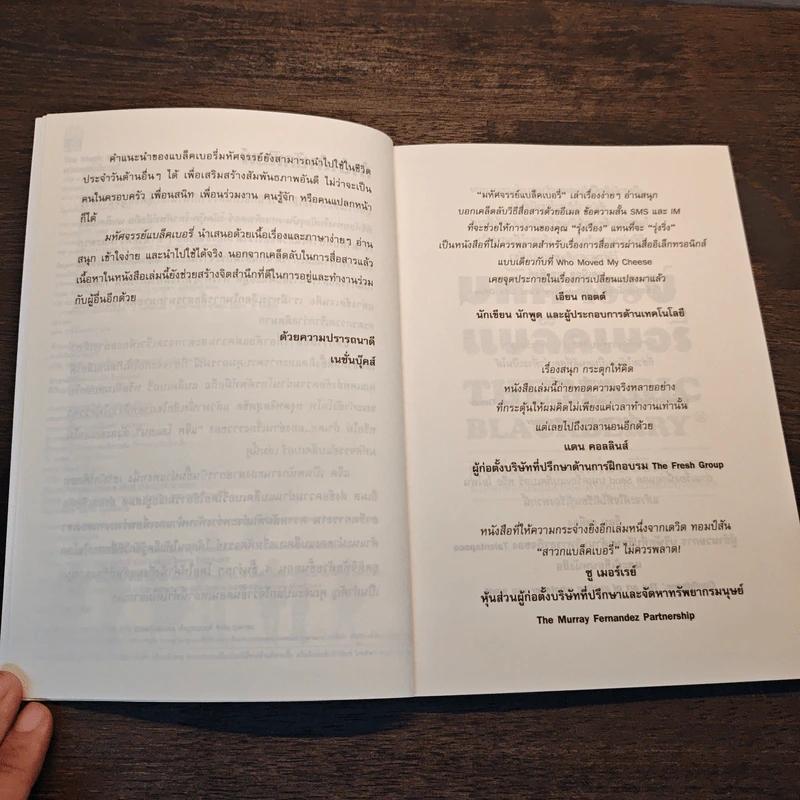 คำแนะนำของแบล็คเบอรี่มหัศจรรย์ยังสามารถนำไปใช้ในชีวิต
ประจำวันด้านอื่นๆ ได้ เพื่อเสริมสร้างสัมพันธภาพอันดี ไม่ว่าจะเป็น
คนในครอบครัว เพื่อนสนิท เพื่อนร่วมงาน คนรู้จัก หรือคนแปลกหน้า
ก็ได้
มหัศจรรย์แบล็คเบอรี่ นำเสนอด้วยเนื้อเรื่องและภาษาง่ายๆ อ่าน
สนุก เข้าใจง่าย และนำไปใช้ได้จริง นอกจากเคล็ดลับในการสื่อสารแล้ว
เนื้อหาในหนังสือเล่มนี้ยังช่วยสร้างจิตสำนึกที่ดีในการอยู่และทำงานร่วม
กับผู้อื่นอีกด้วย
ด้วยความปรารถนาดี
เนชั่นบุ๊คส์
"มหัศจรรย์แบล็คเบอรี่" เล่าเรื่องง่ายๆ อ่านสนุก
บอกเคล็ดลับวิธีสื่อสารด้วยอีเมล ข้อความสั้น SMS และ IM
ที่จะช่วยให้การงานของคุณ "รุ่งเรือง" แทนที่จะ "รุ่งริ่ง"
เป็นหนังสือที่ไม่ควรพลาดสำหรับเรื่องการสื่อสารผ่านสื่ออิเล็กทรอนิกส์
แบบเดียวกับที่ Who Moved My Cheese
เคยจุดประกายในเรื่องการเปลี่ยนแปลงมาแล้ว
เอียน กอตต์
นักเขียน นักพูด และผู้ประกอบการด้านเทคโนโลยี
เรื่องสนุก กระตุกให้คิด
หนังสือเล่มนี้ถ่ายทอดความจริงหลายอย่าง
ที่กระตุ้นให้ผมคิดไม่เพียงแค่เวลาทำงานเท่านั้น
แต่เลยไปถึงเวลานอนอีกด้วย
แดน คอลลินส์
ผู้ก่อตั้งบริษัทที่ปรึกษาด้านการฝึกอบรม The Fresh Group
หนังสือที่ให้ความกระจ่างยิ่งอีกเล่มหนึ่งจากเดวิด ทอมป์สัน
"สาวกแบล็คเบอรี่" ไม่ควรพลาด!
ซู เมอร์เรย์
หุ้นส่วนผู้ก่อตั้งบริษัทที่ปรึกษาและจัดหาทรัพยากรมนุษย์
The Murray Fernandez Partnership